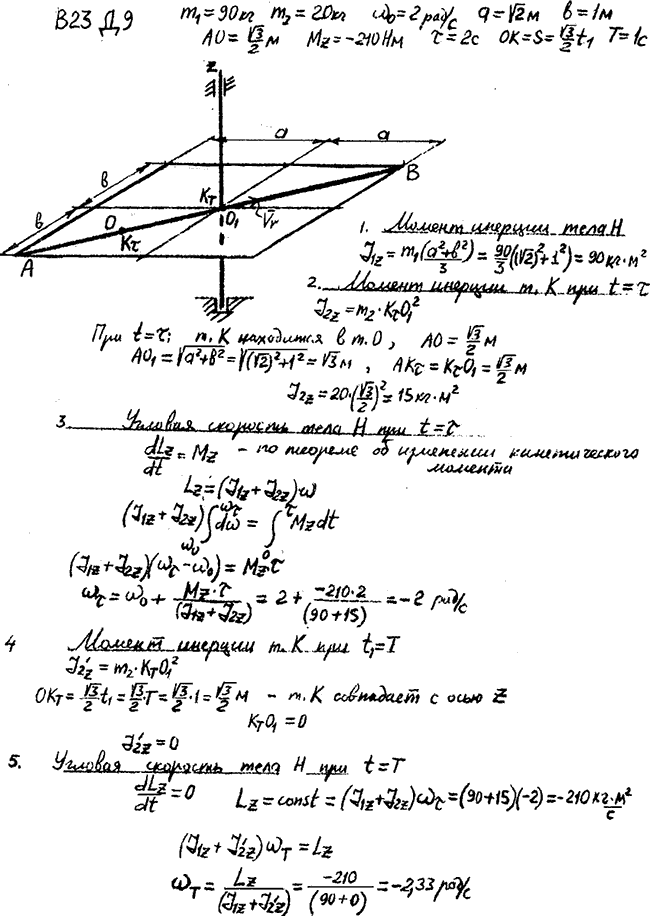 В23 Д9 m₁=90кг m₂=20кг ω₀=2 рад/с a=√2м b=1м
AO=√3/2 м Mz=-210Нм τ=2с OK=S=√3/2 t₁ T=1с
z
a a
b
b
B
Kт
O₁
V̄r
O
Kτ
A
1. Момент инерции тела H
J₁z=m₁(a²+b²)/3=90/3((√2)²+1²)=90кг·м²
2. Момент инерции т. K при t=τ
J₂z=m₂·KτO₁²
При t=τ: т. K находится в т. O, AO=√3/2 м
AO₁=√a²+b²=√(√2)²+1²=√3 м, AKτ=KτO₁=√3/2 м
J₂z=20·(√3/2)²=15кг·м²
3. Угловая скорость тела H при t=τ
dLz/dt=Mz - по теореме об изменении кинетического
момента
Lz=(J₁z+J₂z)ω
(J₁z+J₂z)∫ω₀^ωτ dω=∫₀^τ Mz dt
(J₁z+J₂z)(ωτ-ω₀)=Mz τ
ωτ=ω₀+Mz·τ/(J₁z+J₂z)=2+-210·2/(90+15)=-2 рад/с
4 Момент инерции т. K при t₁=T
J₂'z=m₂·KтO₁²
OKт=√3/2 t₁=√3/2·T=√3/2·1=√3/2 м - т. K совпадает с осью z
KтO₁=0
J₂'z=0
5. Угловая скорость тела H при t=T
dLz/dt=0 Lz=const=(J₁z+J₂z)ωτ=(90+15)(-2)=-210 кг·м²/с
(J₁z+J₂'z)ωт=Lz
ωт=Lz/(J₁z+J₂'z)=-210/(90+0)=-2,33 рад/с